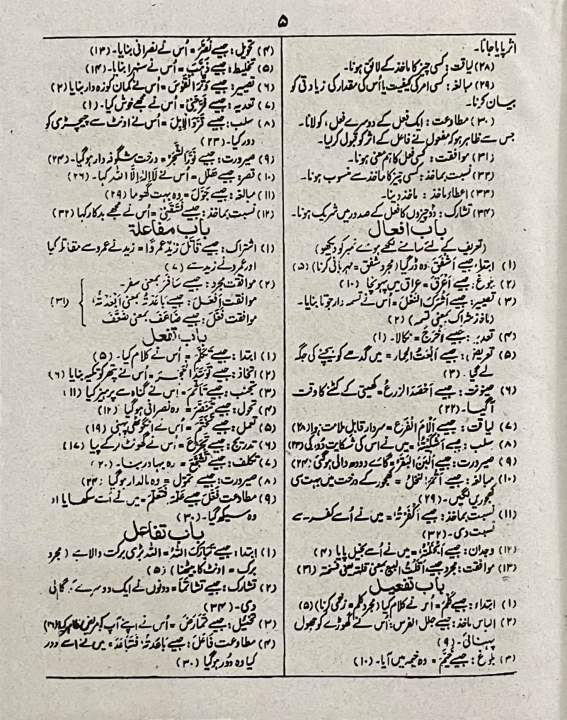 ۵
اثر پایا جانا۔
(۲۸) لیاقت: کسی چیز کا ماخذ کے لائق ہونا۔
(۲۹) مبالغہ: کسی امر کی کیفیت یا اُس کی مقدار کی زیادتی کو
بیان کرنا۔
(۳۰) مطاوعت: ایک فعل کے دوسرے فعل کو لانا۔
جس سے ظاہر ہو کہ مفعول نے فاعل کے اثر کو قبول کر لیا۔
(۳۱) موافقت: کسی فعل کا ہم معنی ہونا۔
(۳۲) نسبت بماخذ: کسی چیز کا ماخذ سے منسوب ہونا۔
(۳۳) اعطاءِ ماخذ: ماخذ دینا۔
(۳۴) تشارک: دو چیزوں کا فعل کے صدور میں شریک ہونا۔
باب افعال
(تعریف کے لئے سامنے لکھے ہوئے نمبر کو دیکھو)
(۱) ابتدا: جیسے اَشْفَقَ = وہ ڈر گیا (مجرد شَفِقَ = مہربانی کرنا) (۵)
(۲) بلوغ: جیسے اَعْرَقَ = عراق میں پہونچا (۱۰)
(۳) تعییر: جیسے اَشْرَكَ النَّعْلَ = اُس نے تسمہ دار جوتا بنایا۔
(ماخذ شراک بمعنی تسمہ) (۲)
(۴) تعدیہ: جیسے اَخْرَجَ = نکالا۔ (۱)
(۵) تعریض: جیسے اَبَعْتُ الحِمار = میں گدھے کو بیچنے کی جگہ
لے گیا۔ (۳)
(۶) حینونت: جیسے اَحْصَدَ الزَّرْعُ = کھیتی کے کٹنے کا وقت
آگیا۔ (۲۲)
(۷) لیاقت: جیسے اَلاَمَ الْفَرَعُ = سردار قابل ملامت ہوا (۲۸)
(۸) سلب: جیسے اَشْکَیْتُهٗ = میں نے اس کی شکایت دُور کی (۲۳)
(۹) صیرورت: جیسے اَلْبَنَ البَقَرُ = گائے دودھ والی ہوگئی (۲۴)
(۱۰) مبالغہ: جیسے اَثْمَرَ النَّخْلُ = کھجور کے درخت میں بہت سی
کھجوریں لگیں۔ (۲۹)
(۱۱) نسبت بماخذ: جیسے اَکْفَرْتُهٗ = میں نے اُسے کفر سے
نسبت دی۔ (۳۲)
(۱۲) وجدان: جیسے اَبْخَلْتُهٗ = میں نے اُسے بخیل پایا (۴)
(۱۳) موافقت: مجرد جیسے اَقَلْتُ البیع بمعنی قلتہ یعنی فسختہ (۳۱)
باب تفعیل
(۱) ابتداء: جیسے کَلَّمَ = اُس نے کلام کیا (مجرد کلم = زخمی کرنا) (۵)
(۲) الباس ماخذ: جیسے جلل الفرس: اُس نے گھوڑے کو جھول
پہنائی۔ (۹)
(۳) بلوغ: جیسے خَیَّمَ = وہ خیمہ میں آیا۔ (۱۰)
(۴) تحویل: جیسے نَصَّرَ = اُس نے نصرانی بنایا۔ (۱۳)
(۵) تخلیط: جیسے ذَهَّبَ = اُس نے سنہرا بنایا۔ (۱۴)
(۶) تصییر: جیسے وَتَّرَ الْقَوْسَ = اُس نے کمان کو زہ دار بنایا (۲)
(۷) تعدیہ: جیسے فَرَّحَنِیْ = اُس نے مجھے خوش کیا۔ (۱)
(۸) سلب: جیسے قَرَّدَ الْاِبِلَ = اُس نے اونٹ سے چیچڑی کو
دور کیا۔ (۲۳)
(۹) صیرورت: جیسے نَوَّرَ الشَّجَرُ = درخت شگوفہ دار ہوگیا۔ (۲۴)
(۱۰) قصر: جیسے هَلَّلَ = اُس نے لَا اِلٰهَ اِلَّا اللہ کہا۔ (۲۶)
(۱۱) مبالغہ: جیسے جَوَّلَ = وہ بہت گھوما (۲۹)
(۱۲) نسبت بماخذ: جیسے فَسَّقَنِیْ = اُس نے مجھے بدکار کہا (۳۲)
باب مفاعلة
(۱) اشتراک: جیسے قَاتَلَ زَیْدٌ عَمرًوا = زید نے عمرو سے مقاتلہ کیا
اور عمرو نے زید سے (۷)
(۲) موافقت مجرد: جیسے سَافَرَ بمعنی سفر۔
موافقت اَفْعَلَ: جیسے بَاعَدْتُّهٗ بمعنی اَبْعَدْتُّهٗ
موافقت فَعَّلَ: جیسے ضَاعَفَ بمعنی ضَعَّفَ
(۳۱)
باب تفعل
(۱) ابتدا: جیسے تَکَلَّمَ = اُس نے کلام کیا۔ (۵)
(۲) اتخاذ: جیسے تَوَسَّدَ الْحَجَرَ = اُس نے پتھر کو تکیہ بنایا (۶)
(۳) تجنب: جیسے تَاَثَّمَ = اس نے گناہ سے پرہیز کیا (۱۱)
(۴) تحول: جیسے تَنَصَّرَ = وہ نصرانی ہو گیا (۱۲)
(۵) تعمل: جیسے تَخَتَّمَ = اُس نے انگوٹھی پہنی (۱۹)
(۶) تدریج: جیسے تَجَرَّعَ = اُس نے گھونٹ کر کے پیا (۱۷)
(۷) تکلف: جیسے تَشَجَّعَ = وہ بہادر بنا۔ (۲۰)
(۸) صیرورت: جیسے تَمَوَّلَ = وہ مالدار ہو گیا (۲۴)
(۹) مطاوعت فَعَّلَ جیسے عَلَّمْتُهٗ فَتَعَلَّمَ = میں نے اُسے سکھایا اور
وہ سیکھ گیا۔ (۳۰)
باب تفاعل
(۱) ابتدا: جیسے تَبَارَكَ اللّٰهُ = اللہ بڑی برکت والا ہے (مجرد
برک = اونٹ کا بیٹھنا) (۵)
(۲) تشارک: جیسے تَشَاتَمَا = دونوں نے ایک دوسرے کو گالی
دی۔ (۳۴)
(۳) تخییل: جیسے تَمَارَضَ = اُس نے اپنے آپ کو مریض ظاہر کیا
(۴) مطاوعت فَاعَلَ: جیسے بَاعَدْتُّهٗ فَتَبَاعَدَ = میں نے اُسے دور
کیا وہ دُور ہو گیا (۳۰)